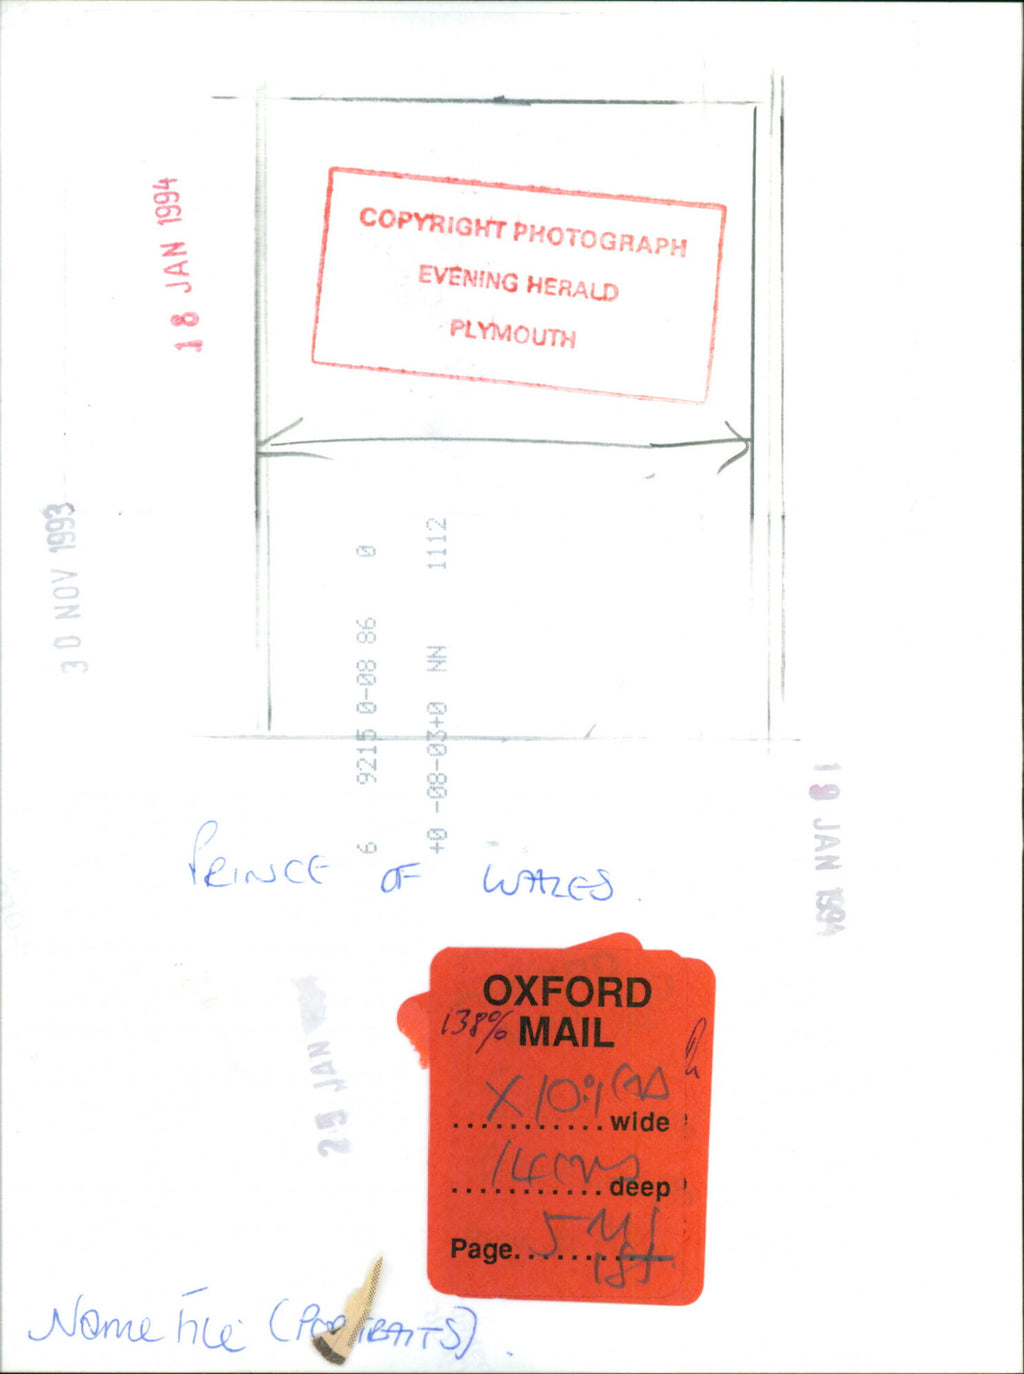 18 JAN 1994
COPYRIGHT PHOTOGRAPH
EVENING HERALD
PLYMOUTH
30 NOV 1993
6 9215 0-08 86 0
+0 -08-03+0 NN 1112
18 JAN 1994
PRINCE OF WALES.
25 JAN
OXFORD
138% MAIL
X 10.1 cms
............ wide
14 cms
............ deep
Page. 5 MJ
Name File (PORTRAITS).